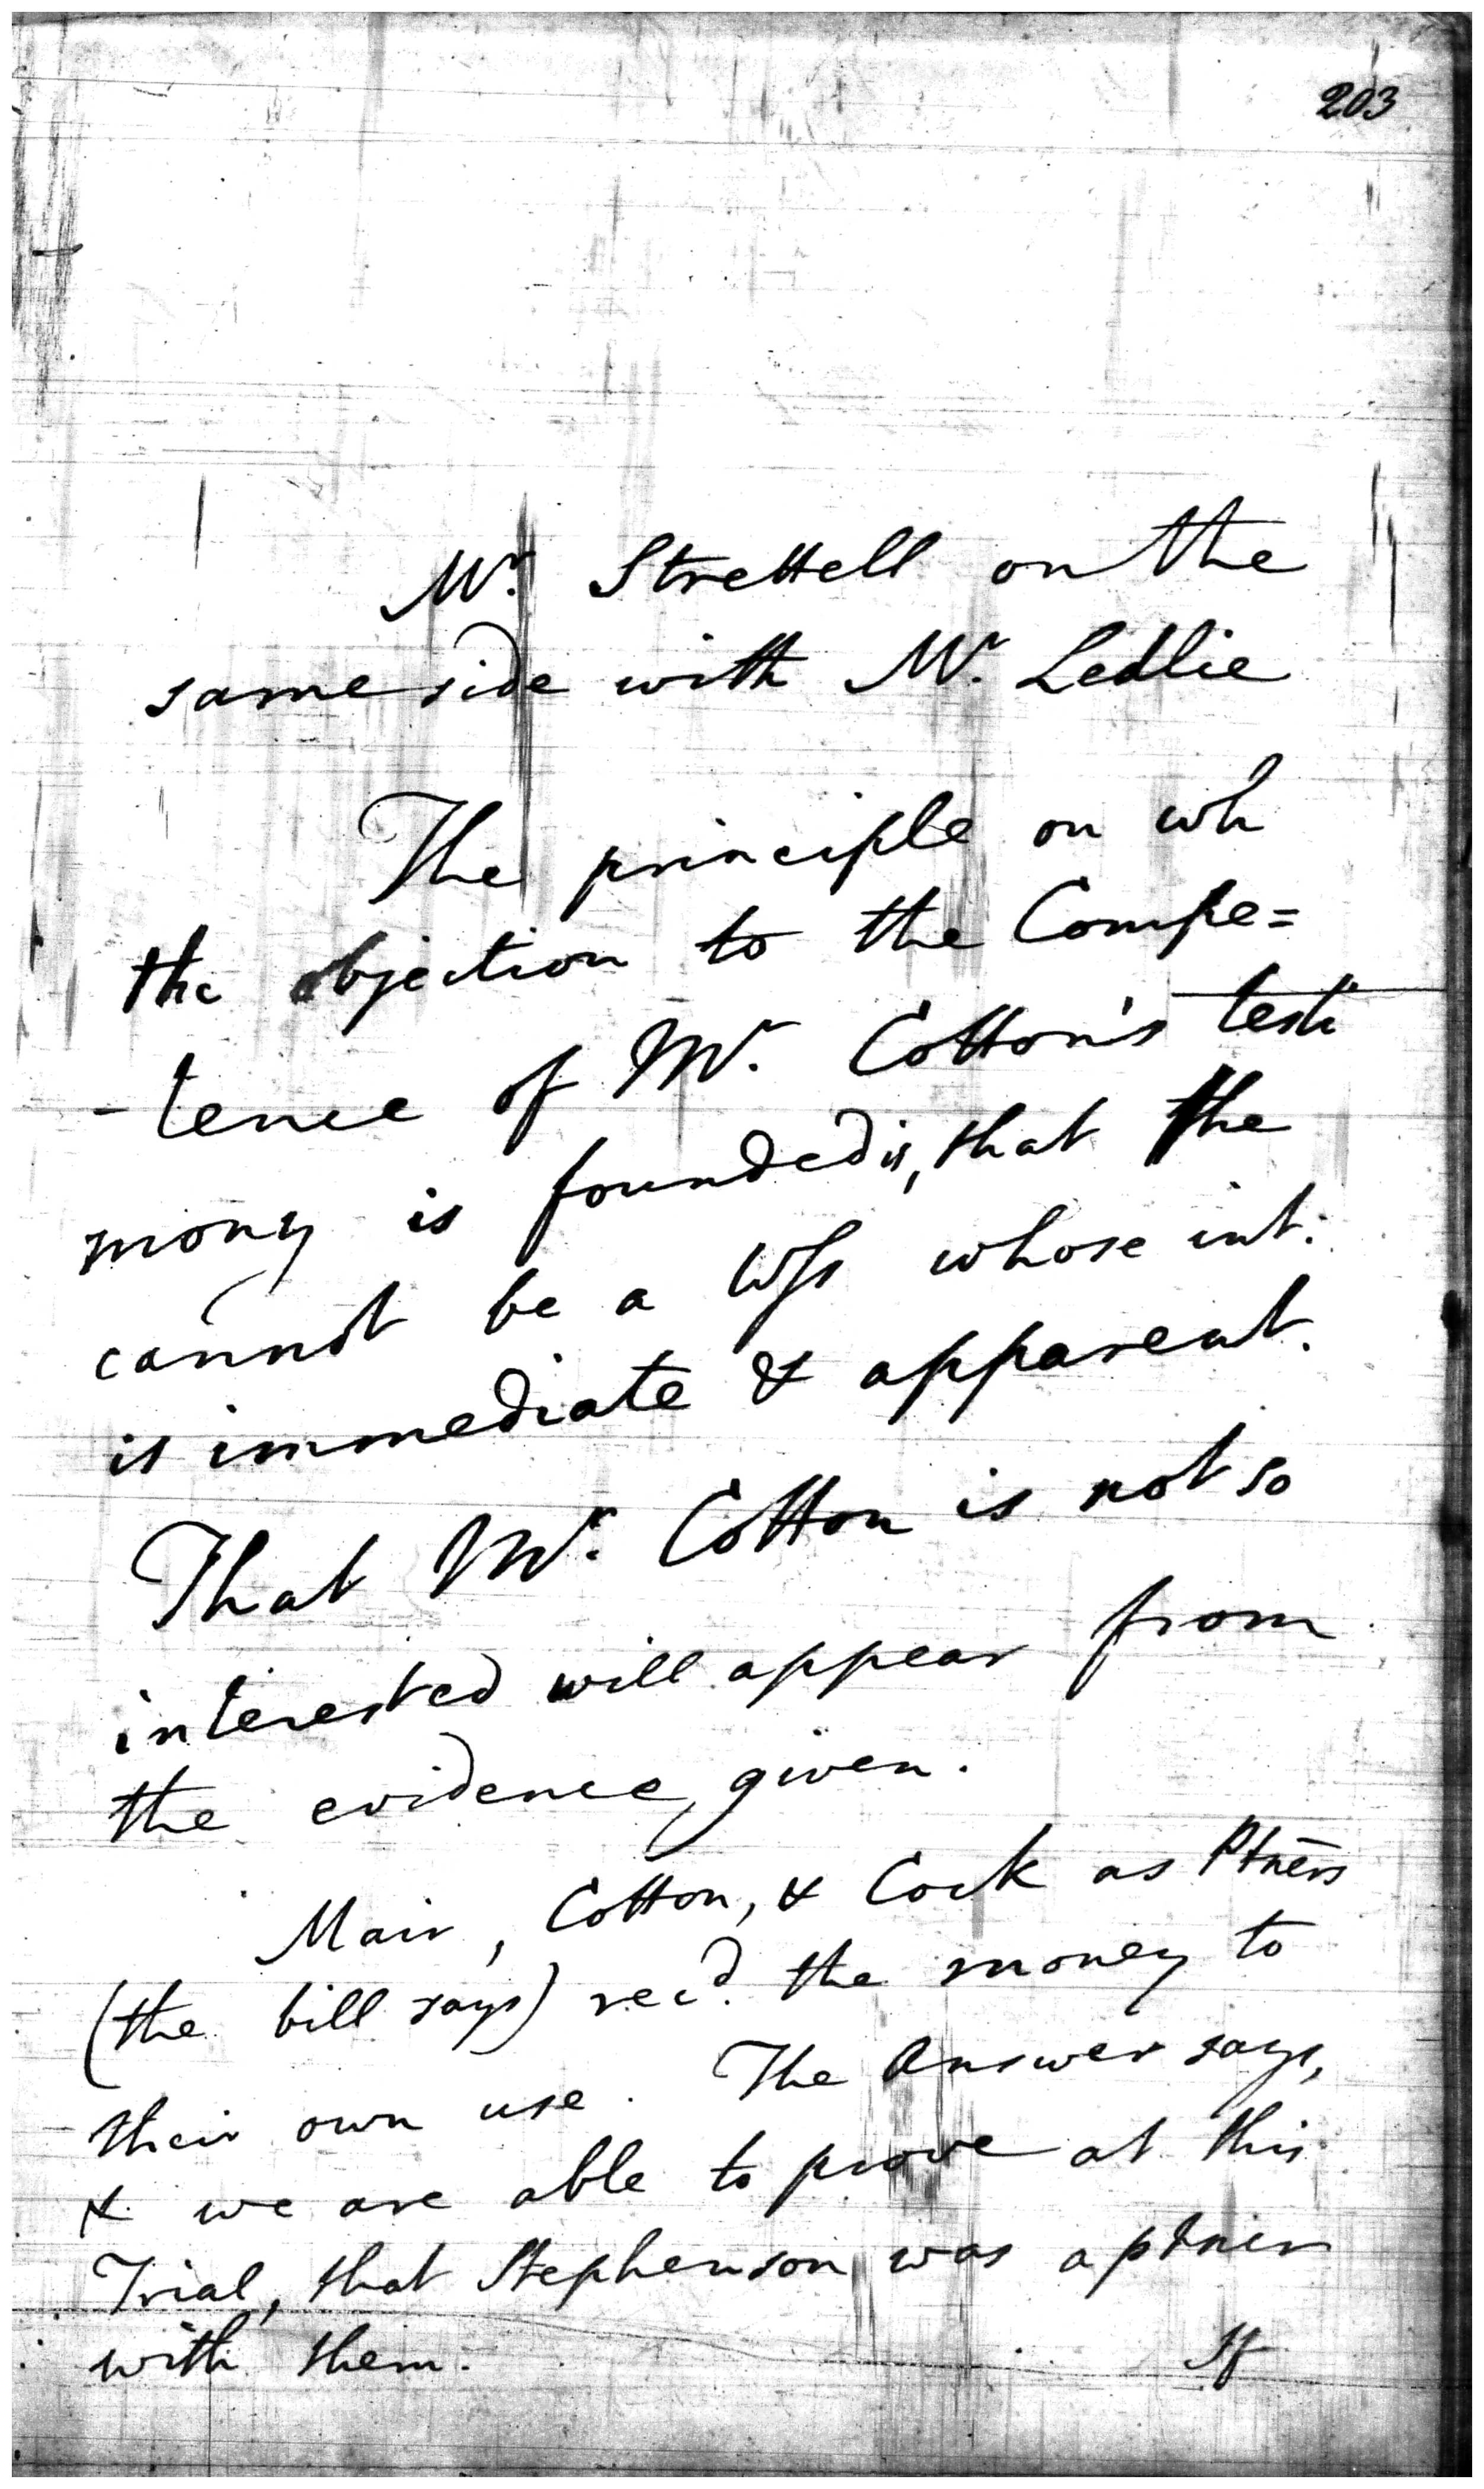 203
Mr. Strettell on the
same side with Mr. Ledlie
The principle on wh
the objection to the Compe=
-tence of Mr. Cotton's testi
mony is founded is, that the
cannot be a Wss whose int:
is immediate & apparent.
That Mr. Cotton is not so
interested will appear from
the evidence given.
Mair, Cotton, & Cock as Ptners
(the bill says) recd. the money to
their own use. The Answer says,
& we are able to prove at this
Trial, that Stephenson was a ptner
with them.
If